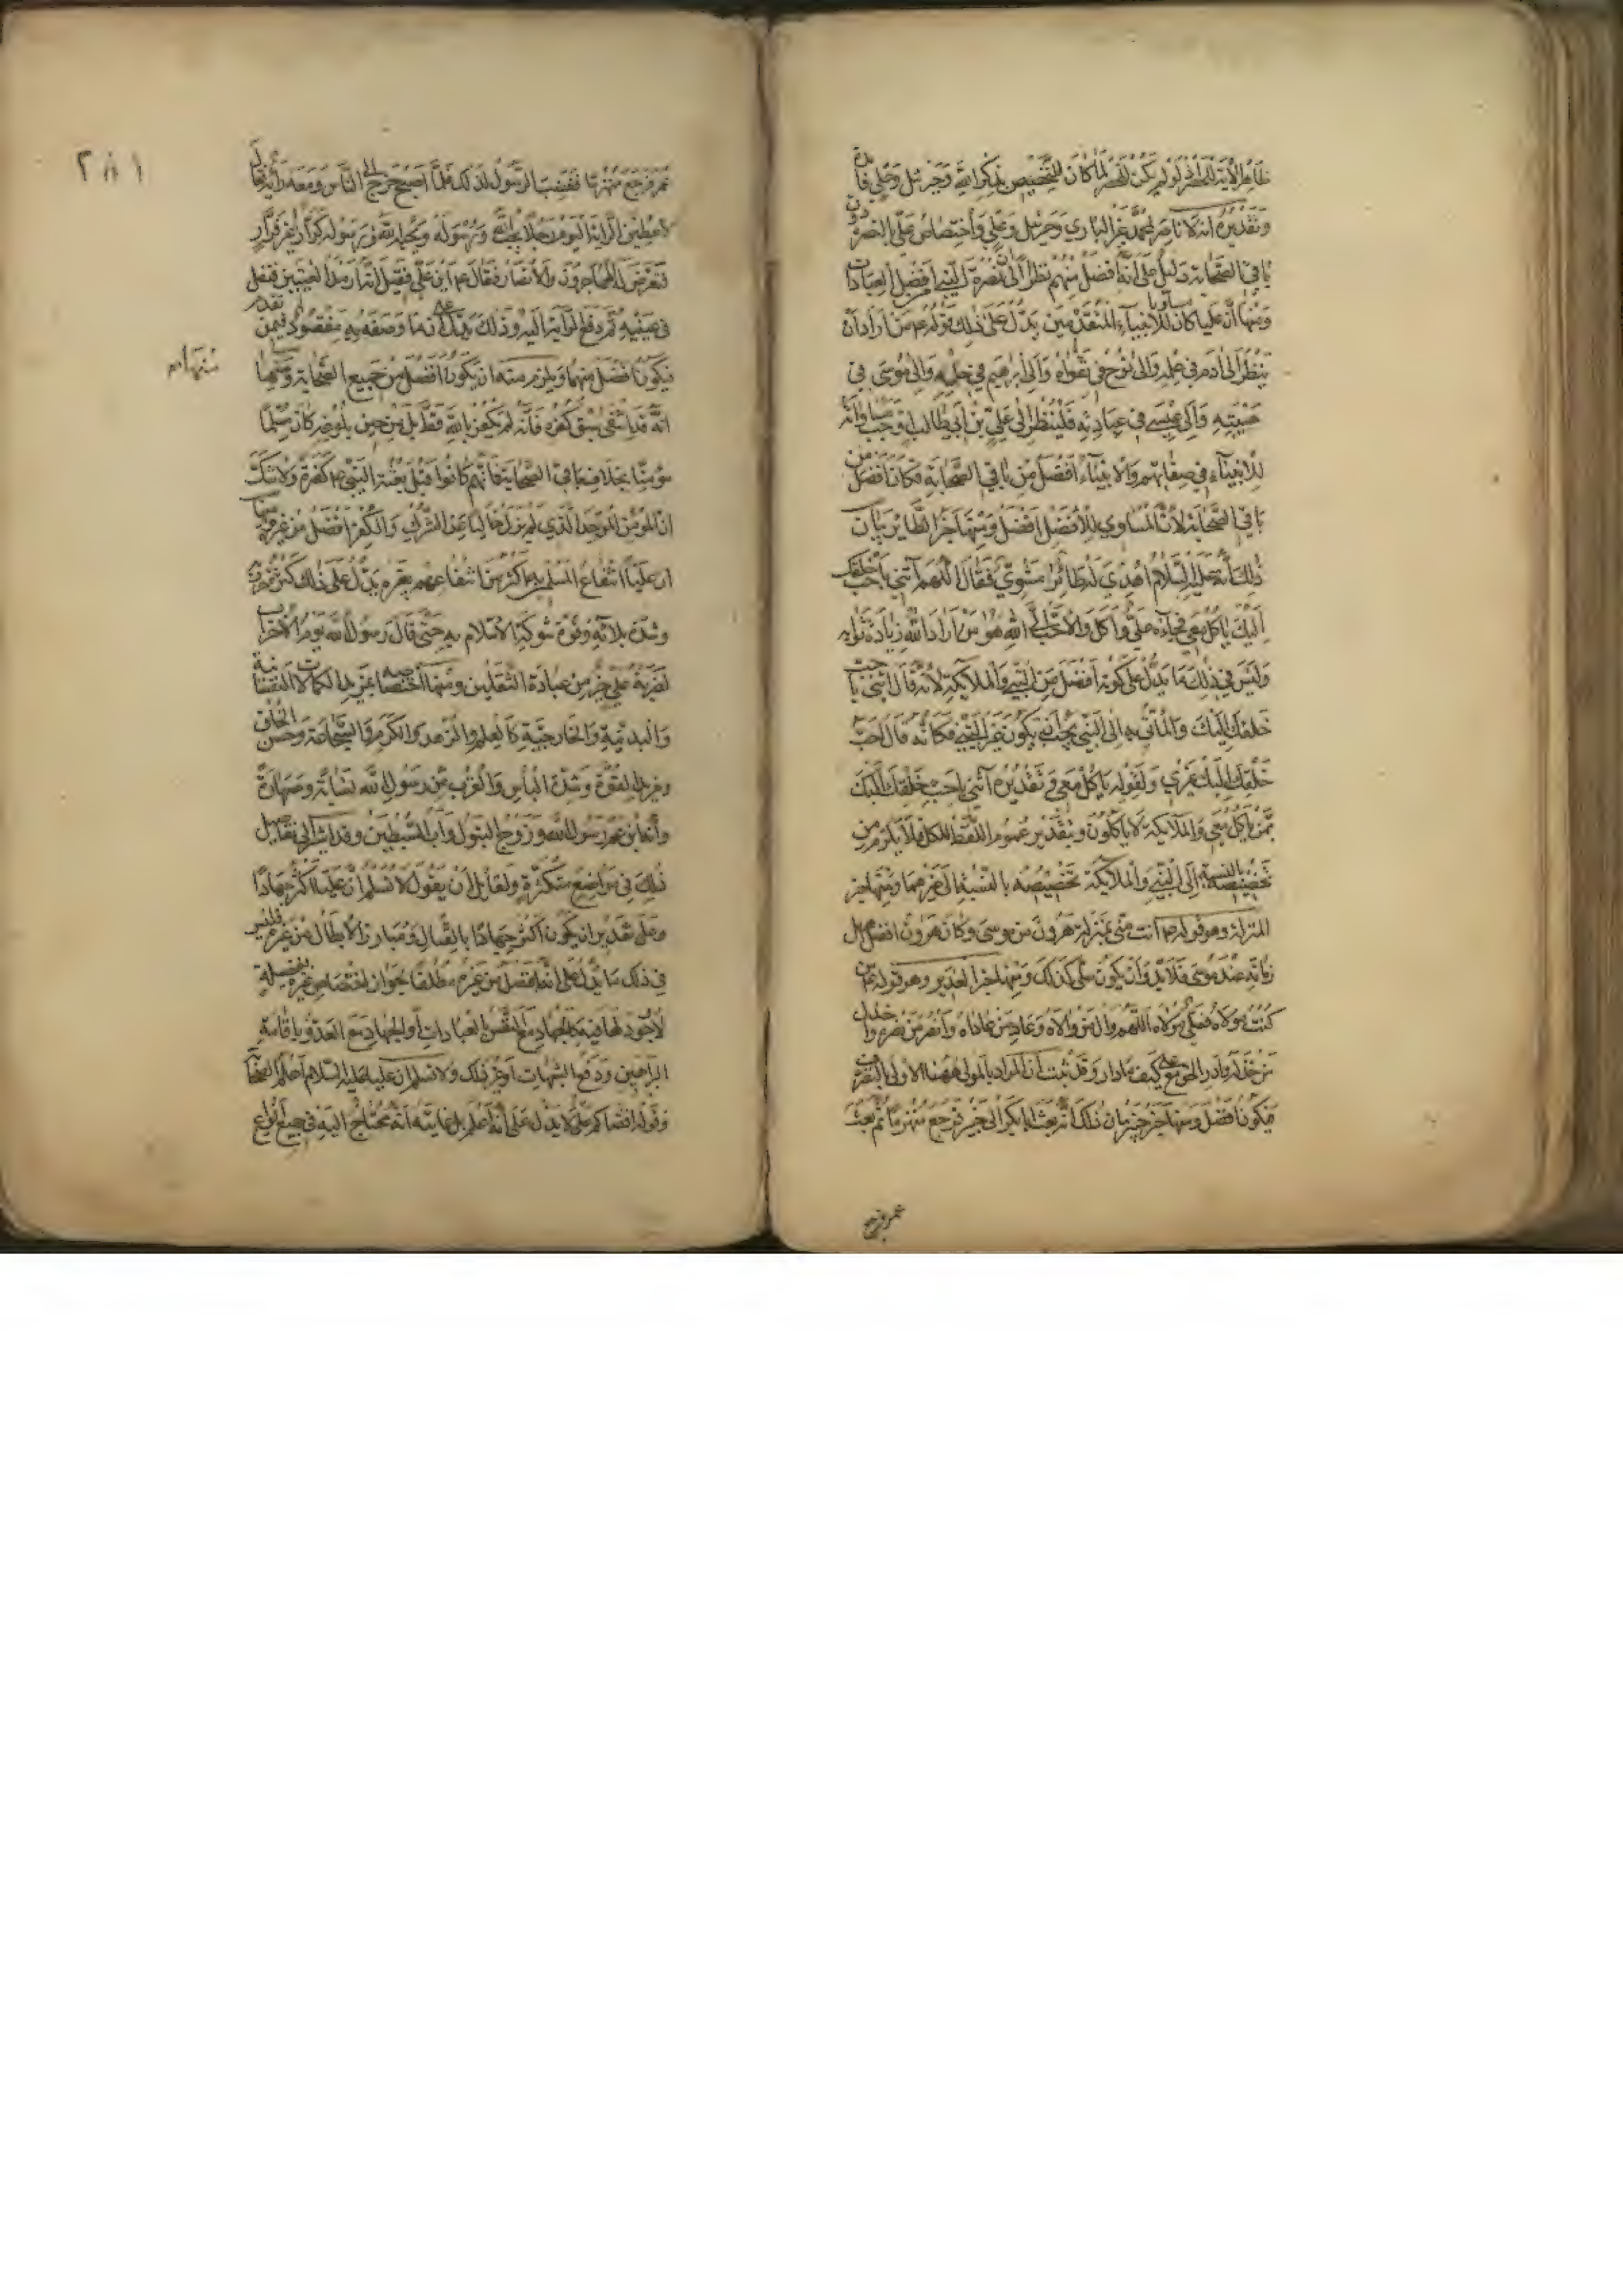 ظاهر الآية للحصر اذ لو لم يكن للحصر لما كان للتخصيص بذكر الله وجبرئيل وعلي فائدة
وتقديره انه لا ناصر لمحمد غير الباري وجبرئيل وعلي واختصاص علي بالنصرة دون
باقي الصحابة دليل على انه افضل منهم نظرا الى ان نصرة النبي من افضل العبادات
ومنها ان عليا كان مساويا للانبياء المتقدمين يدل على ذلك قوله عم من اراد ان
ينظر الى آدم في علمه والى نوح في تقواه والى ابرهيم في حلمه والى موسى في
هيبته والى عيسى في عبادته فلينظر الى علي بن ابي طالب اوجب مساواته
للانبياء في صفاتهم والانبياء افضل من باقي الصحابة فكان افضل من
باقي الصحابة لان المساوي للافضل افضل ومنها خبر الطائر بيان
ذلك انه عليه السلام اهدي له طائر مشوي فقال اللهم آتني باحب خلقك
اليك ياكل معي فجاءه علي واكل والاحب الى الله هو من اراد الله زيادة ثوابه
وليس في ذلك ما يدل على كونه افضل من النبي والملايكة لانه قال ائتني باحب
خلقك اليك والمأتي به الى النبي يجب ان يكون غير النبي فكانه قال احب
خلقك اليك غيري ولقوله ياكل معي وتقديره آتني باحب خلقك اليك
ممن ياكل معي والملايكة لا ياكلون وبتقدير عموم اللفظ للكل فلا يلزم من
تخصيصه بالنسبة الى النبي والملايكة تخصيصه بالنسبة الى غيرهما ومنها خبر
المنزلة وهو قوله عم انت مني بمنزلة هرون من موسى وكان هرون افضل اهل
زمانه عند موسى فلابد وان يكون علي كذلك ومنها خبر الغدير وهو قوله عم من
كنت مولاه فعلي مولاه اللهم وال من والاه وعاد من عاداه وانصر من نصره واخذل
من خذله وادر الحق مع علي كيف ما دار وقد ثبت ان المراد بالمولى ههنا الاولى بالتصرف
فيكون افضل ومنها خبر خيبر بيان ذلك انه بعث ابا بكر الى خيبر فرجع منهزما ثم بعث
عمر فرجع
٢٨١
عمر فرجع منهزما فغضب الرسول لذلك فلما اصبح خرج الى الناس ومعه راية فقال
لاعطين الراية اليوم رجلا يحب الله ورسوله ويحبه الله ورسوله كرار غير فرار
فتعرض لها المهاجرون والانصار فقال عم اين علي فقيل انه ارمد العينين فتفل
في عينيه ثم دفع الراية اليه وذلك يدل على ان ما وصفه به مفقود فيمن تقدم
فيكون افضل منهما ويلزم منه ان يكون افضل من جميع الصحابة ومنها
منهما
انه قد انتفى سبق كفره فانه لم يكفر بالله قط بل من حين بلوغه كان مسلما
مؤمنا بخلاف باقي الصحابة فانهم كانوا قبل بعثة النبي عم كفرة ولا شك
ان المؤمن الموحد الذي لم يزل خاليا عن الشرك والكفر افضل من غيره ومنها
ان عليا انتفاع المسلمين به اكثر من انتفاعهم بغيره يدل على ذلك كثرة حروبه
وشدة بلائه وقوة شوكة الاسلام به حتى قال رسول الله يوم الاحزاب
لضربة علي خير من عبادة الثقلين ومنها اختصاصه عن غيره بالكمالات النفسانية
والبدنية والخارجية كالعلم والزهد والكرم والشجاعة وحسن الخلق
ومزيد القوة وشدة البأس والقرب من رسول الله نسابة ومصاهرة
وانه ابن عم رسول الله وزوج البتول وابو السبطين وقد اشرنا الى تفاصيل
ذلك في مواضع متكثرة ولقائل ان يقول لا نسلم ان عليا اكثر جهادا
وعلى تقدير ان يكون اكثر جهادا بالقتال ومبارزة الابطال من غيره فليس
في ذلك ما يدل على انه افضل من غيره مطلقا لجواز اختصاص غيره بفضيلة
لا وجود لها فيه كالجهاد مع النفس بالعبادات او الجهاد مع العدو باقامة
البراهين ودفع الشبهات او غير ذلك ولا نسلم ان عليا عليه السلام اعلم الصحابة
وقوله اقضاكم علي لا يدل على انه اعلم بل غايته انه يحتاج اليه في جميع انواع